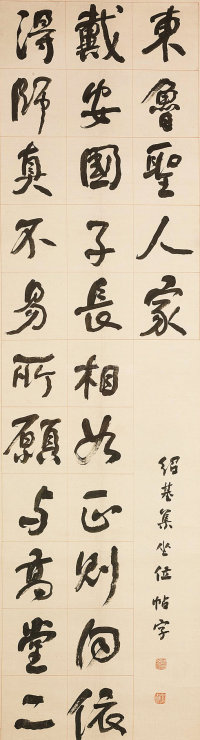 得師真不易所願与高堂二
戴安國子長相如正則向依
東魯聖人家
紹基集坐位帖字